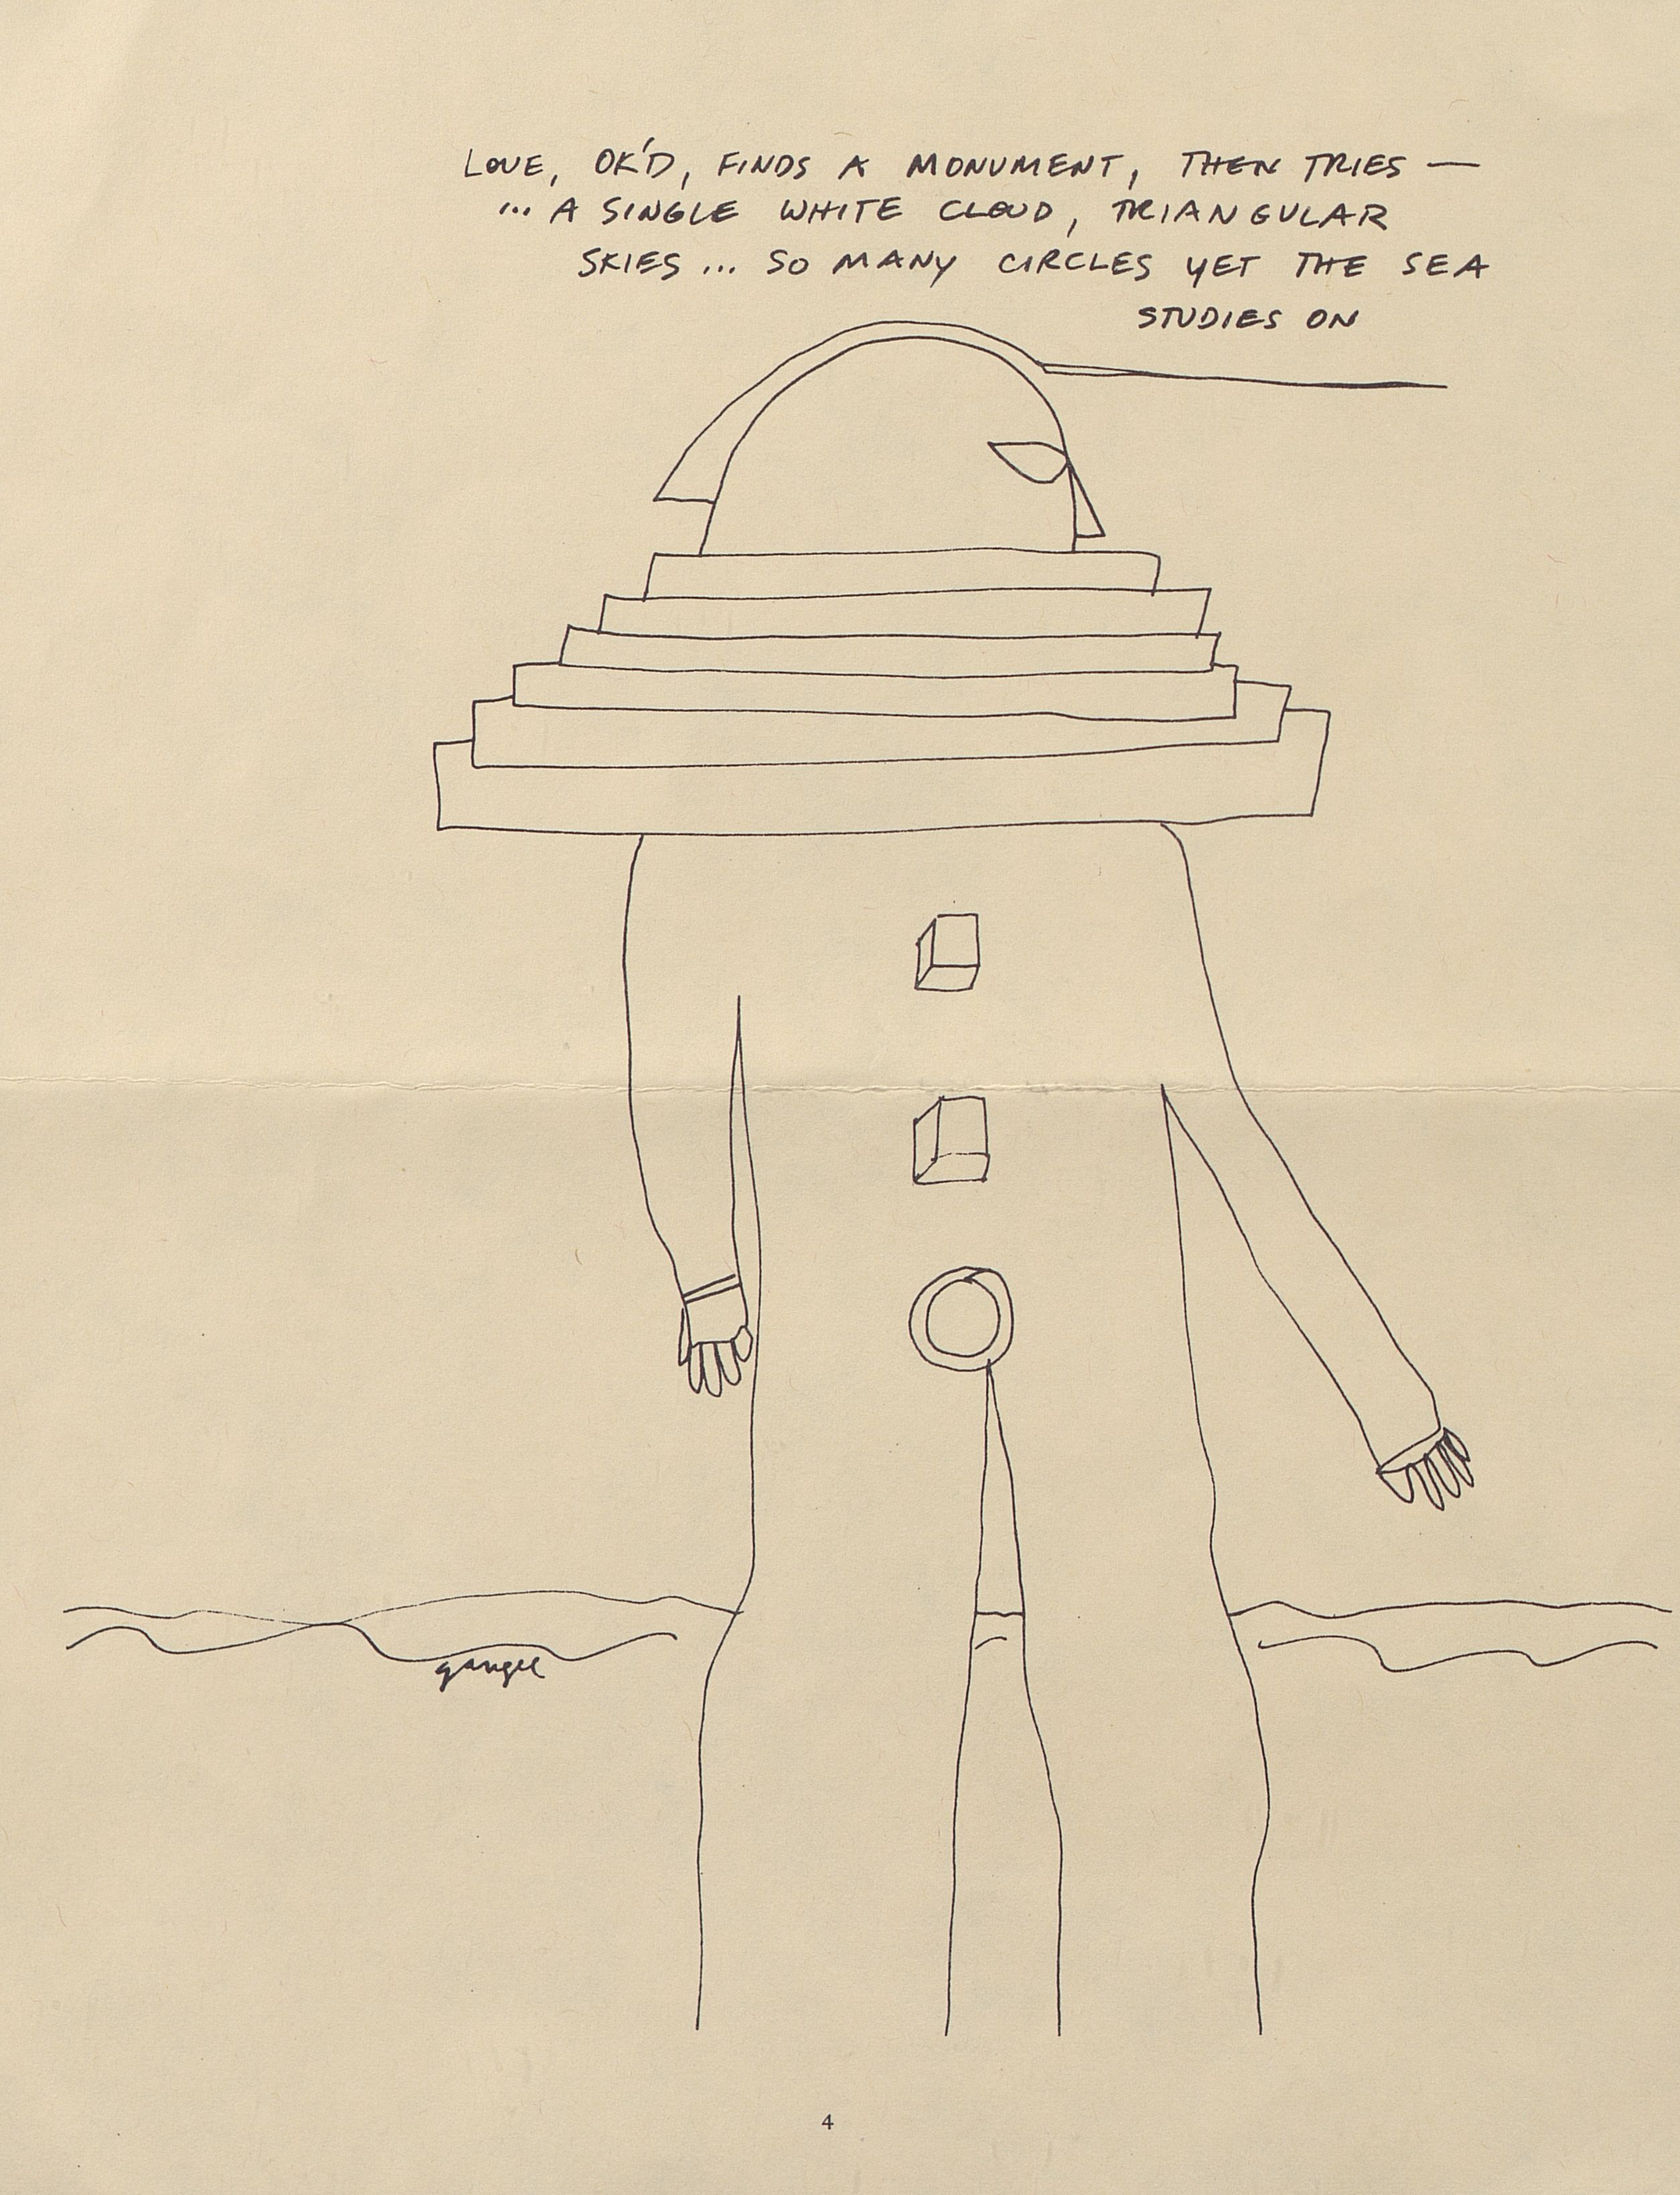 LOVE, OK'D, FINDS A MONUMENT, THEN TRIES —
... A SINGLE WHITE CLOUD, TRIANGULAR
SKIES ... SO MANY CIRCLES YET THE SEA
STUDIES ON
4